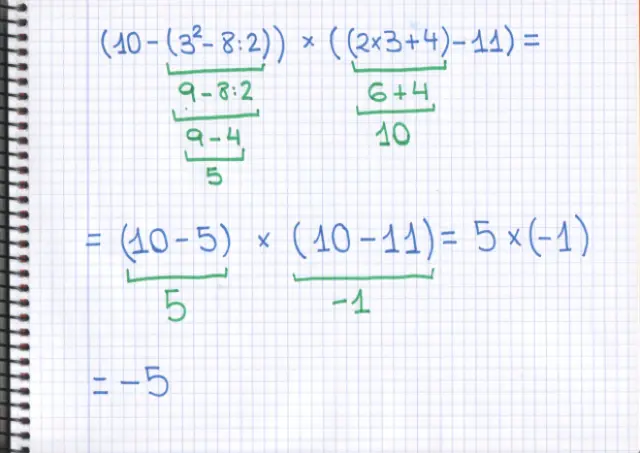 (10-(3²-8:2)) × ((2×3+4)-11) =
9-8:2 6+4
9-4 10
5
= (10-5) × (10-11) = 5×(-1)
5 -1
= -5